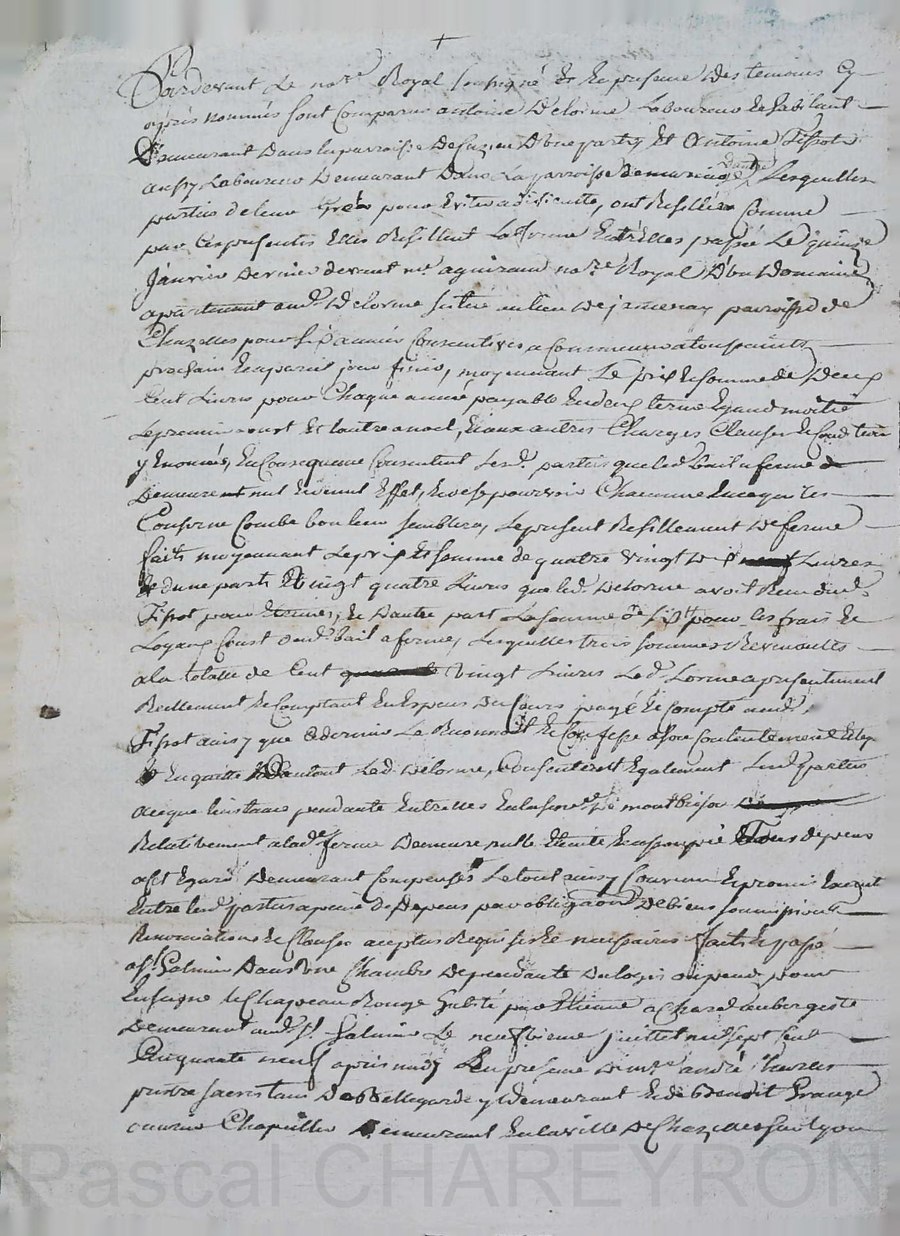 Pardevant Le no.re Royal soussigné Et En presence Des temoins Cy
apres nommés sont Comparus antoine Delorme Laboureur & habitant
Demeurant Dans la parroisse De D'une part, Et Antoine Tissot
aussy Laboureur Demeurant Dans La parroisse Lesquelles
parties de leur Gré pour Eviter a dissicute, ont Resillié Comme
par Ces presentes Elles Resillent La ferme Entr'elles passée Le quinze
Janvier Dernier devant me aguiraud no.re Royal D'un Domaine
apartenant aud. Delorme situé au lieu De parroisse de
Chazelles pour six années Consecutives a Commencer a toussaints
prochain & a pareil jour finir, moyennant Le prix & somme de Deux
Cent Livres pour Chaque année payable En deux terme Egaux moitié
Le premier aoust Et l'autre a noel, & aux autres Charges Clauses & Conditions
y Enoncées, En Consequence Consentent lesd. parties que led. bail a ferme
Demeure nul & de nul Effet, & de se pourvoir Chacunne En ce qui les
Conserne Comme bon leur semblera, Le present Resilliement De ferme
fait moyennant Le prix Et somme de quatre vingt Livres
d'une part Et vingt quatre Livres que led. Delorme avoit Recu dud.
Tissot pour & D'autre part La somme de pour les frais &
Loyaux Coust dud. bail a ferme, Lesquelles trois sommes Revenantes
a la totalle de Cent vingt Livres Led. Lorme a presentement
Reellement & Comptant En Especes Du Cours payé & compté aud.
Tissot ainsy que Ce dernier Le Reconnoit & Confesse a son Contentement
& En quitte D'autant Led. Delorme, Consentent Egalement Lesd. parties
a ce que l'instance pendante Entr'elles En la sen.ee De montbrison
Relativement a lad. ferme Demeure nulle Eteinte & assoupie Tous depens
a cet Egard Demeurant Compensés Le tout ainsy Convenu & promis
Entre lesd. parties a peine De Depens par obligaon De biens soumissions
Renonciations & Clauses a ce plus Requises & necessaires fait & passé
a st. Galmier Dans Une Chambre Dependante Du logis ou pend pour
Enseigne le Chapeau Rouge habité par Etienne achard aubergiste
Demeurant aud. st. Galmier Le neufvieme juillet mil sept Cent
Cinquante neuf apres midy En presence De mre andré
pretre sacristain De Bellegarde y Demeurant & de Benoit Grange
ouvrier Chapellier Demeurant En la ville De Chazelles sur lyon
Pascal CHAREYRON